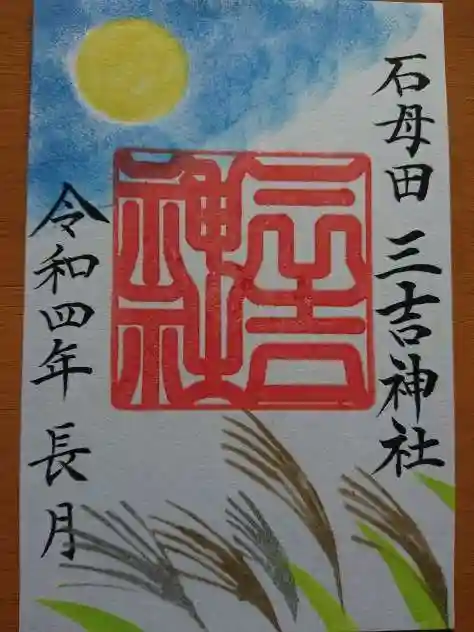 石母田 三吉神社
三吉神社
令和四年 長月